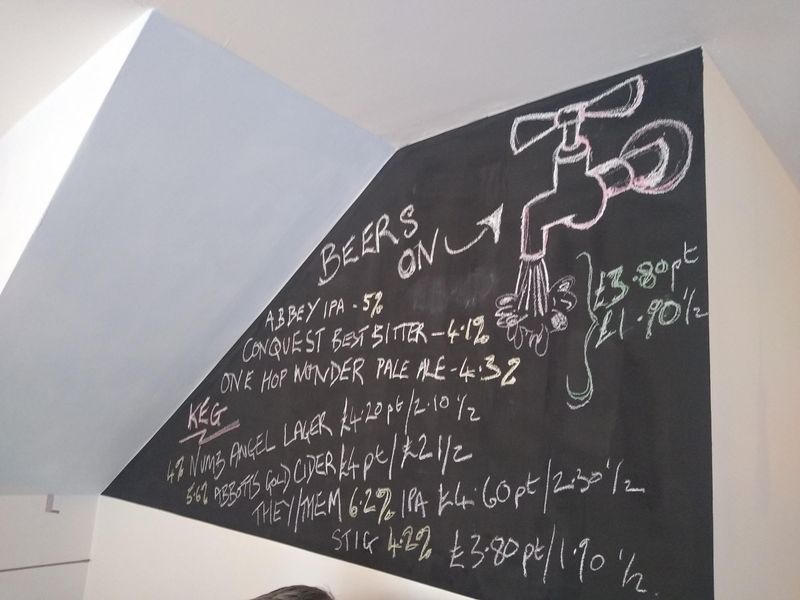 BEERS
ON
£3.80pt
£1.90 1/2
ABBEY IPA - 5%
CONQUEST BEST BITTER - 4.1%
ONE HOP WONDER PALE ALE - 4.3%
KEG
4% NUMB ANGEL LAGER £4.20pt/2.10 1/2
5.6% ABBOTTS GOLD CIDER £4pt/£2 1/2
THEY/THEM 6.2% IPA £4.60pt/2.30 1/2
STIG 4.2% £3.80pt/1.90 1/2